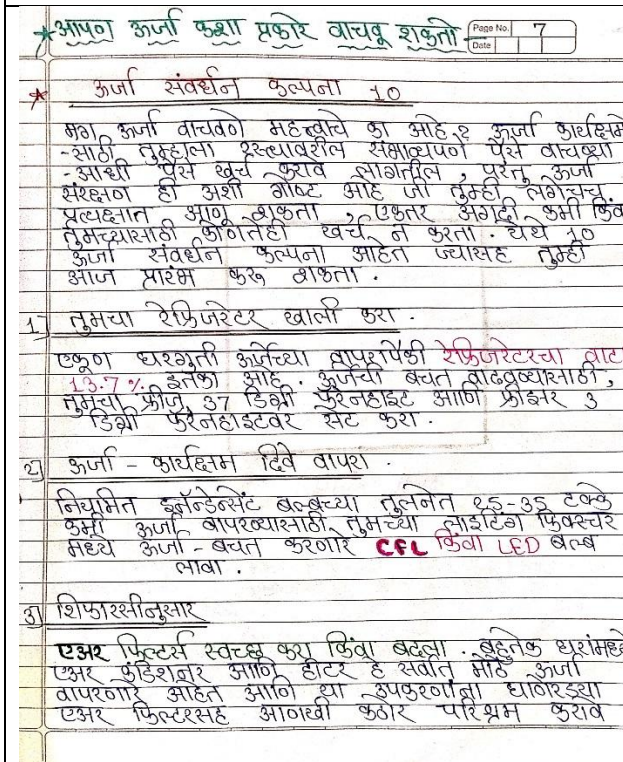 *आपण ऊर्जा कशा प्रकारे वाचवू शकतो -
Page No. 7
Date
* ऊर्जा संवर्धन कल्पना 10
मग ऊर्जा वाचवणे महत्वाचे का आहे? ऊर्जा कार्यक्षमते
-साठी तुम्हाला रस्त्यावरील संभाव्यपणे पैसे वाचवण्या
-आधी पैसे खर्च करावे लागतील, परंतु ऊर्जा
संरक्षण ही अशी गोष्ट आहे जी तुम्ही लगेचच
प्रत्यक्षात आणू शकता, एकतर अगदी कमी किंवा
तुमच्यासाठी कोणतेही खर्च न करता. येथे 10
ऊर्जा संवर्धन कल्पना आहेत ज्यासह तुम्ही
आज प्रारंभ करू शकता.
1] तुमचा रेफ्रिजरेटर खाली करा.
एकूण घरगुती ऊर्जेच्या वापरापैकी रेफ्रिजरेटरचा वाटा
13.7% इतका आहे. ऊर्जेची बचत वाढवण्यासाठी,
तुमचा फ्रीज 37 डिग्री फॅरेनहाइट आणि फ्रीझर 3
डिग्री फॅरेनहाइटवर सेट करा.
2] ऊर्जा - कार्यक्षम दिवे वापरा.
नियमित इनॅन्डेन्सेंट बल्बच्या तुलनेत 25-35 टक्के
कमी ऊर्जा वापरण्यासाठी तुमच्या लाइटिंग फिक्स्चर
मध्ये ऊर्जा - बचत करणारे CFL किंवा LED बल्ब
लावा.
3] शिफारसीनुसार
एअर फिल्टर्स स्वच्छ करा किंवा बदला. बहुतेक घरांमध्ये
एअर कंडिशनर आणि हीटर हे सर्वात मोठे ऊर्जा
वापरणारे आहेत आणि या उपकरणांना घाणेरड्या
एअर फिल्टरसह आणखी कठोर परिश्रम करावे